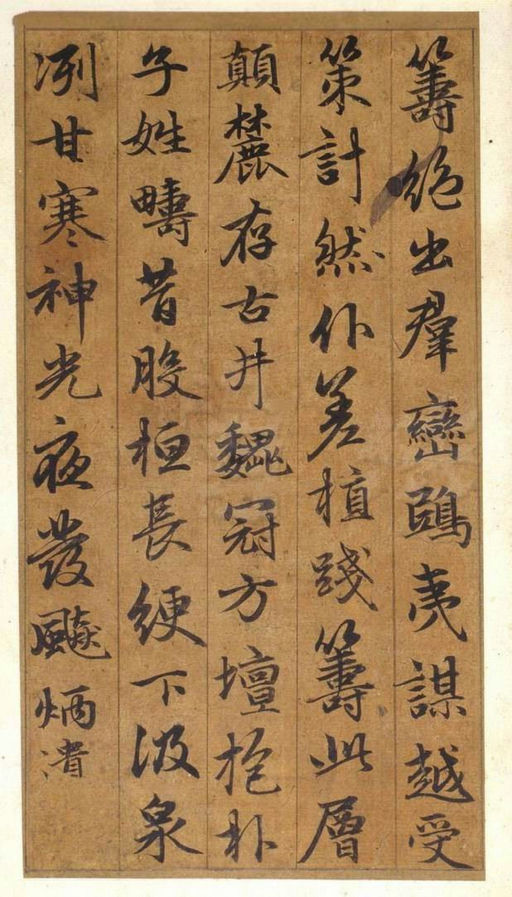 籌絶出羣巒鴟夷謀越受
策計然仆差植踐籌此層
顛麓存古井魏冠方壇抱朴
子姓疇昔股桓長綆下汲泉
冽甘寒神光夜發飈炳潰